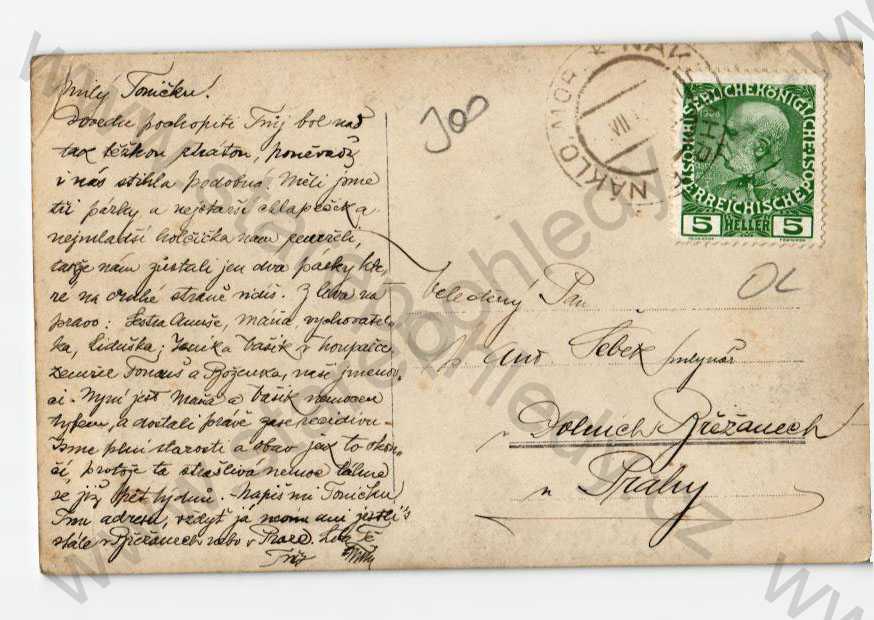 Milý Toničku!
Dovedu pochopiti Tvůj bol nad
tak těžkou ztrátou, poněvadž
i nás stihla podobná. Měli jsme
tři párky a nejstarší chlapeček a
nejmladší holčička nám zemřeli,
takže nám zůstali jen dva párky kte,
ré na druhé straně vidíš. Z leva na
pravo: Sestra Anuše, Máňa, vychovatel-
ka, Liduška; Jeník a Vašík v houpačce
zemřeli Tomouš a Boženka, naši jmenov-
ci. Nyní jest Máňa a Vašík nemocen
tyfem, a dostali právě zase recidivu.
Jsme plni starosti a obav jak to okon-
čí, protože ta strašlivá nemoc táhne
se již pět týdnů. Napiš mi Toničku
Tvou adresu, vedyť já nevím ani jestli's
stále v Břežanech nebo v Praze. Líbá Tě
Tvůj
Jos
NÁKLO-MOR.
VII
5 HELLER 5
OL
Veleděný Pan
p. Ant. Šebek mlynář
v Dolních Břežanech
u Prahy
www.stare-pohledy.cz